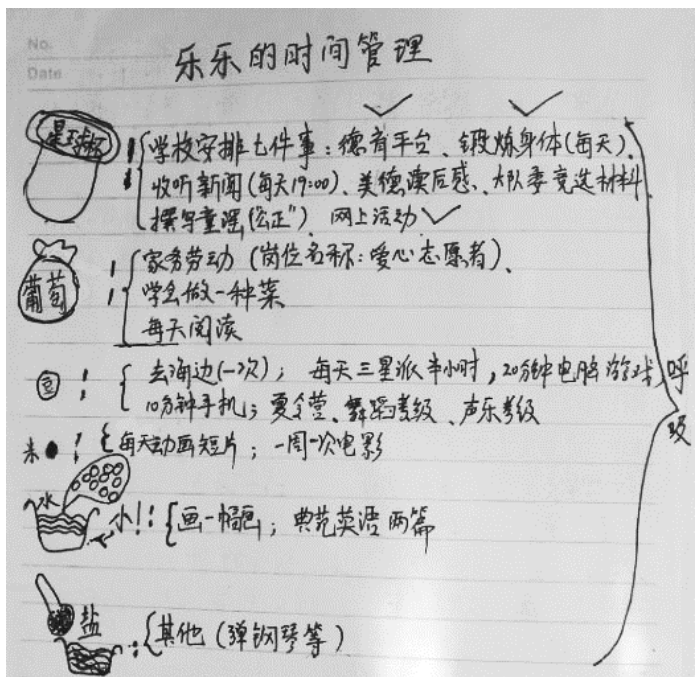 No.
Date
乐乐的时间管理
学校安排七件事：德育平台、锻炼身体(每天)、
收听新闻(每天19:00)、美德读后感、大队委竞选材料
撰写童谣("公正")、网上活动
葡萄
家务劳动（岗位名称：爱心志愿者）、
学会做一种菜
每天阅读
豆：
去海边(一次)； 每天三星派半小时，20分钟电脑游戏
10分钟手机；夏令营、舞蹈考级、声乐考级
呼吸
米：每天动画短片；一周一次电影
水
小!：画一幅画；典范英语两篇
盐：其他（弹钢琴等）